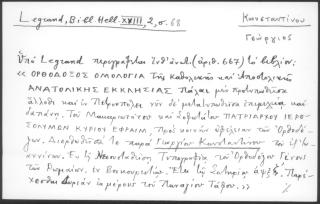 Legrand, Bibl. Hell. XVIII, 2, σ. 68
Κωνσταντίνου
Γεώργιος
Ὑπὸ Legrand περιγράφεται ἐνθ' ἀνωτ. (ἀριθ. 667) τὸ βιβλίον:
« ΟΡΘΟΔΟΞΟΣ ΟΜΟΛΟΓΙΑ Τῆς καθολικῆς καὶ Ἀποστολικῆς
ΑΝΑΤΟΛΙΚΗΣ ΕΚΚΛΗΣΙΑΣ Πάλαι μὲν προτυπωθεῖσα
ἄλλοθι καὶ ἐν Πετρουπόλει νῦν δὲ μετατυπωθεῖσα ἐπιμελείᾳ καὶ
δαπάνῃ. Τοῦ Μακαριωτάτου καὶ Σοφωτάτου ΠΑΤΡΙΑΡΧΟΥ ΙΕΡΟ-
ΣΟΛΥΜΩΝ ΚΥΡΙΟΥ ΕΦΡΑΙΜ, Πρὸς κοινὴν ὠφέλειαν τῶν Ὀρθοδό-
ξων. Διορθωθεῖσα δὲ παρὰ Γεωργίου Κωνσταντίνου τοῦ ἐξ Ἰω-
αννίνων. Ἐν τῇ Νεοσυστάθῃ Τυπογραφίᾳ τοῦ Ὀρθοδόξου Γένους
τῶν Ῥωμαίων, ἐν Βουκουρεστίῳ. Ἔτει τῷ Σωτηρίῳ αψξθ'. Παρέ-
χεσθαι δωρεὰν ἐκ μέρους τοῦ Παναγίου Τάφου. »